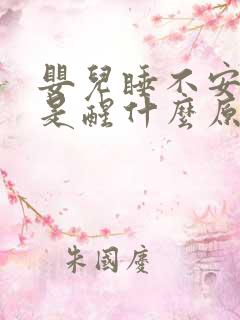 嬰兒睡不安
是醒什麼原
朱國慶